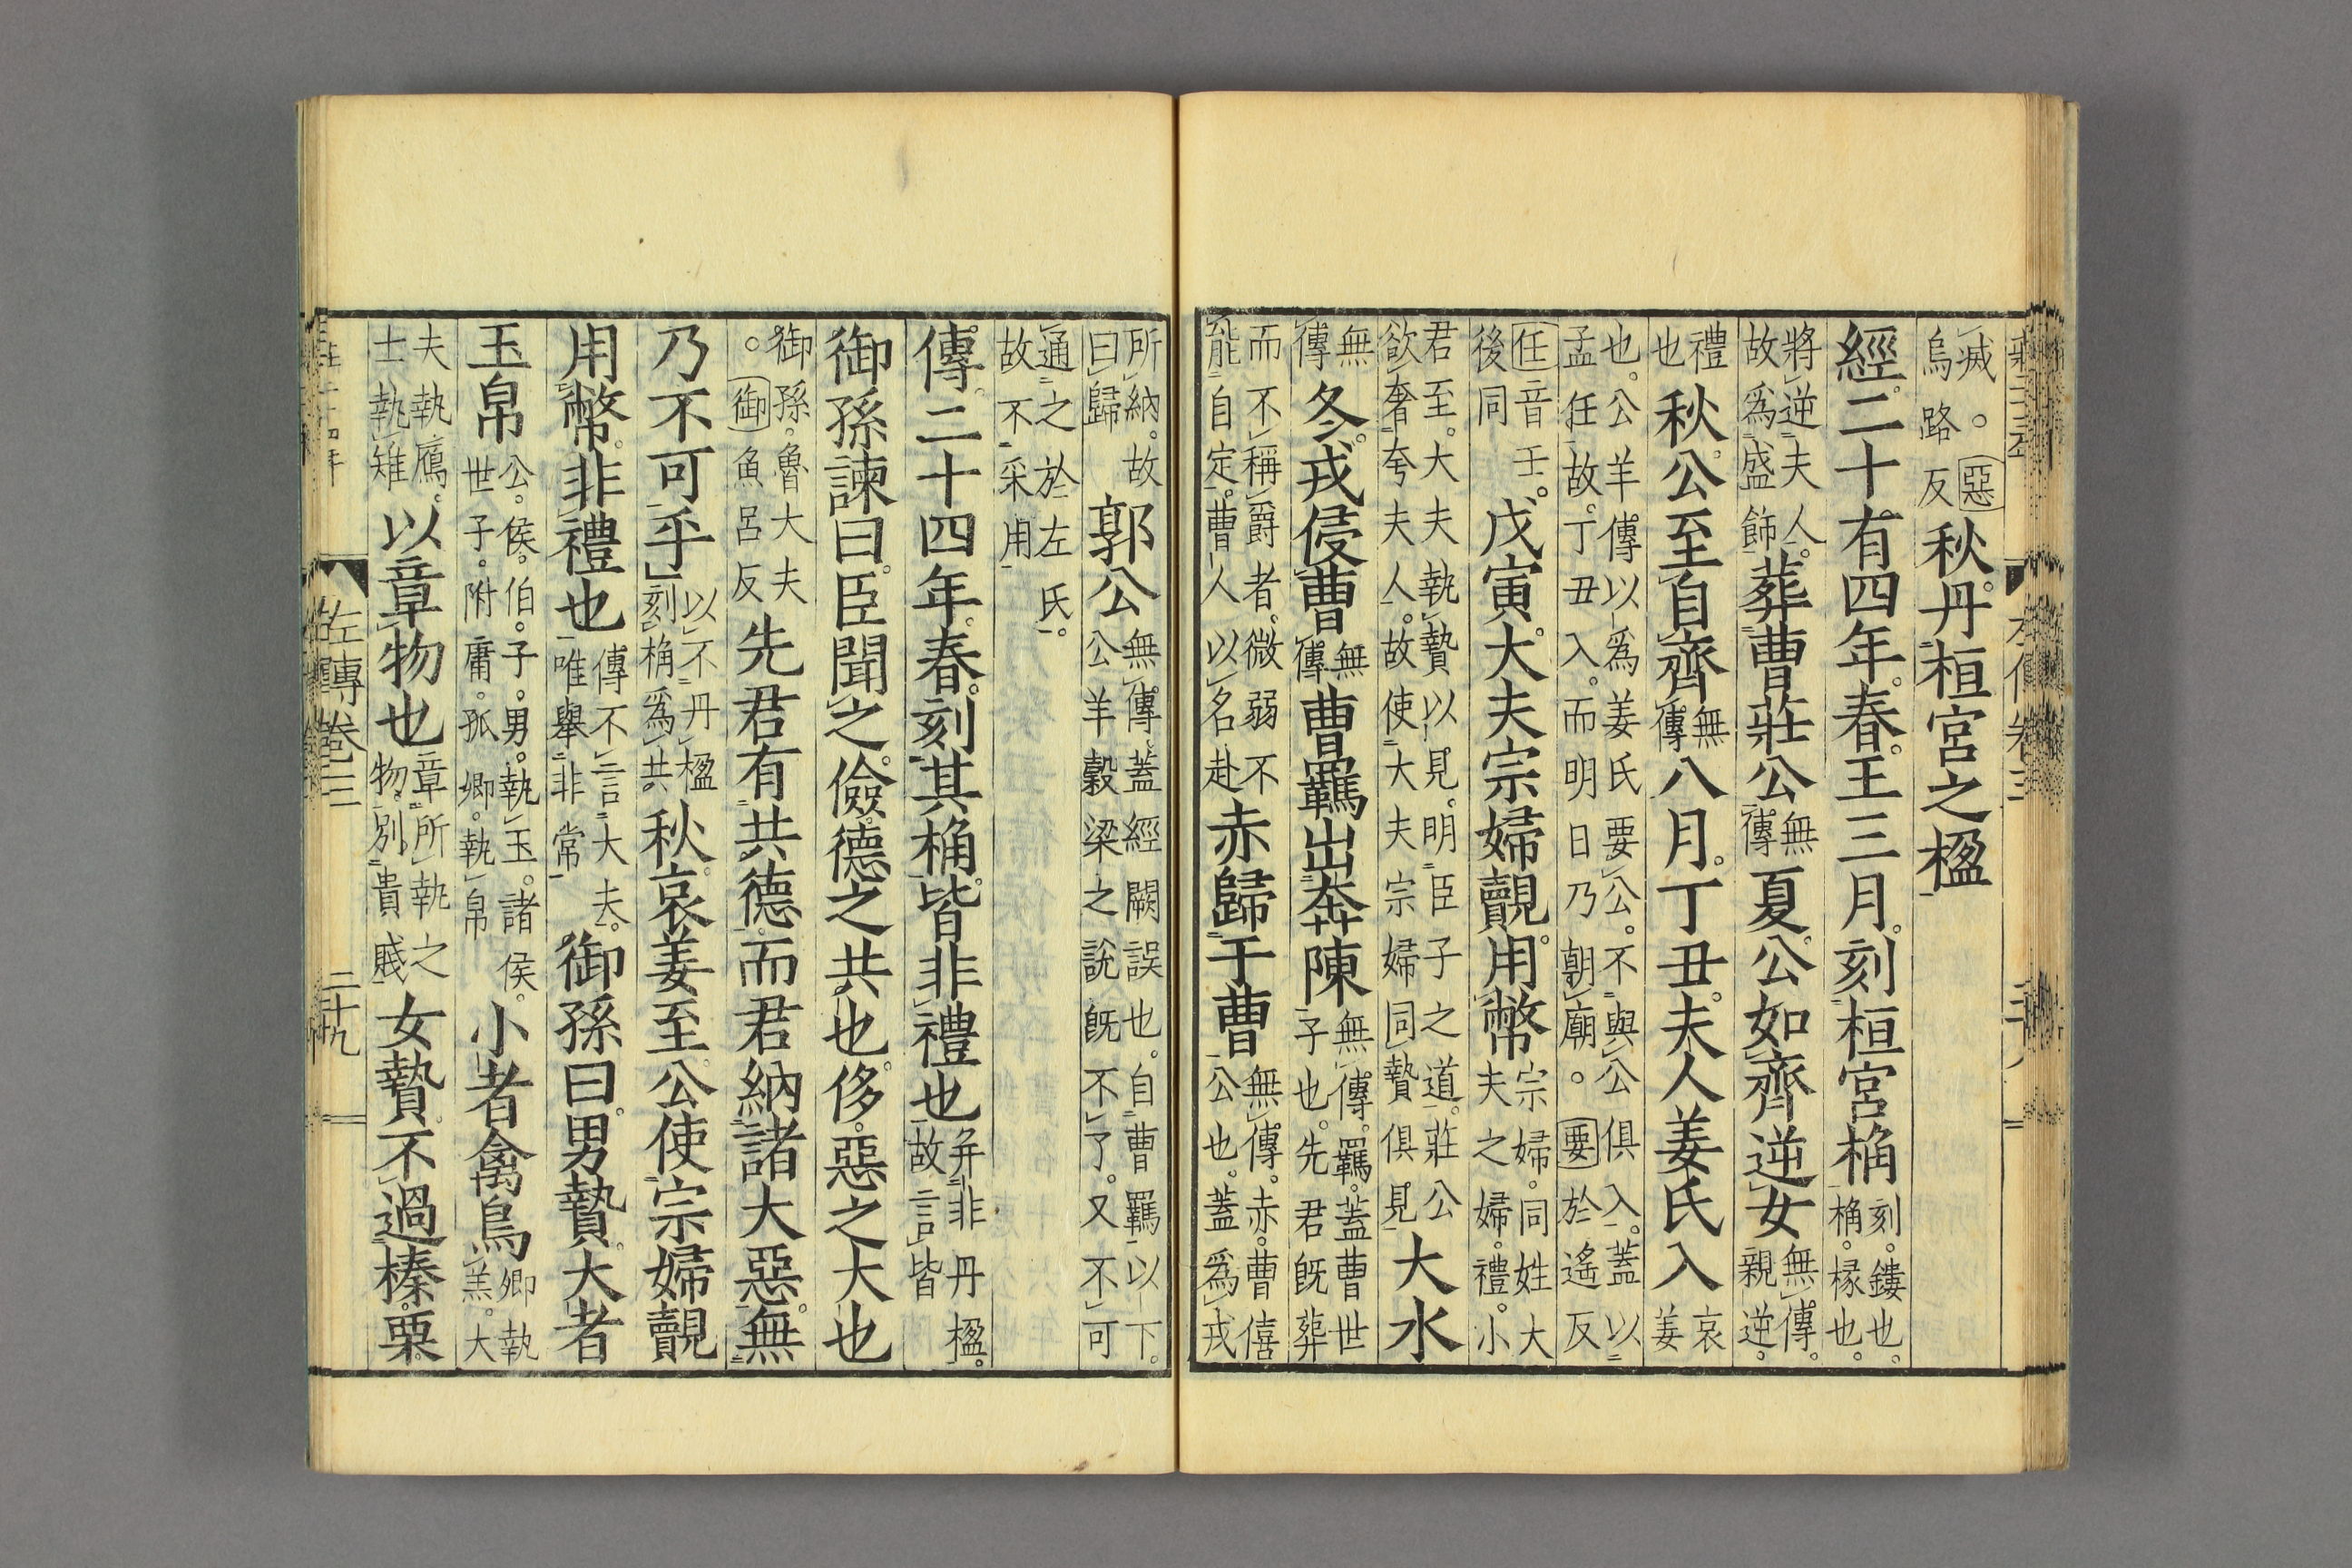 滅。惡烏路反秋。丹桓宮之楹
經。二十有四年。春。王三月。刻桓宮桷刻。鏤也。桷。椽也。
將逆夫人。故爲盛飾葬曹莊公無傳夏。公如齊逆女無傳。親逆。
禮也秋。公至自齊無傳八月。丁丑。夫人姜氏入哀姜
也。公羊傳以爲姜氏要公。不與公俱入。蓋以孟任故。丁丑入。而明日乃朝廟。要於遙反
任音壬。後同戊寅。大夫宗婦覿。用幣宗婦。同姓大夫之婦。禮。小
君至。大夫執贄以見。明臣子之道。莊公欲奢夸夫人。故使大夫宗婦同贄俱見大水
無傳冬。戎侵曹無傳曹羈出奔陳無傳。羈。蓋曹世子也。先君既葬
而不稱爵者。微弱不能自定。曹人以名赴赤歸于曹無傳。赤。曹僖公也。蓋爲戎
所納。故曰歸郭公無傳。蓋經闕誤也。自曹羈以下。公羊穀梁之說既不了。又不可
通之於左氏。故不采用
傳。二十四年。春。刻其桷。皆非禮也并非丹楹。故言皆
御孫諫曰。臣聞之。儉。德之共也。侈。惡之大也
御孫。魯大夫。御魚呂反先君有共德。而君納諸大惡。無
乃不可乎以不丹楹刻桷爲共秋。哀姜至。公使宗婦覿
用幣。非禮也傳不言大夫。唯舉非常御孫曰。男贄。大者
玉帛公。侯。伯。子。男。執玉。諸侯。世子。附庸。孤卿。執帛小者禽鳥卿執羔。大
夫執鴈。士執雉以章物也章所執之物。別貴賤女贄。不過榛。栗。
左傳卷三
二十九